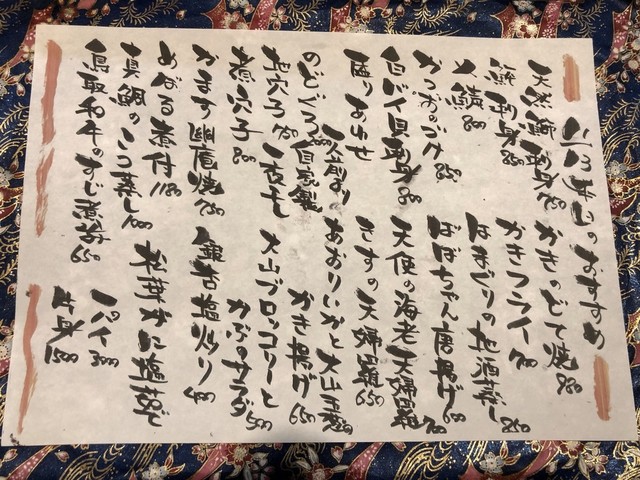 本日のおすすめ
天然鰤刺身 750
刺身 850
〆鯖 800
かつおのづけ 850
白バイ貝刺身 800
盛り合わせ
一人前より
のどぐろ自家製
一夜干し
地穴子 750
煮穴子 800
かます幽庵焼 750
めばる煮付 1100
真鯛のこつ蒸し 700
鳥取和牛のすじ煮込 650
かきのどて焼 980
かきフライ 700
はまぐりの地酒蒸し 850
ばばちゃん唐揚げ 600
天使の海老天婦羅 700
きすの天婦羅 650
あおりいかと大山
かき揚げ 650
大山ブロッコリーと
かぶのサラダ 500
銀杏塩炒り 400
松葉がに塩茹で
一パイ 3000
半身 1500